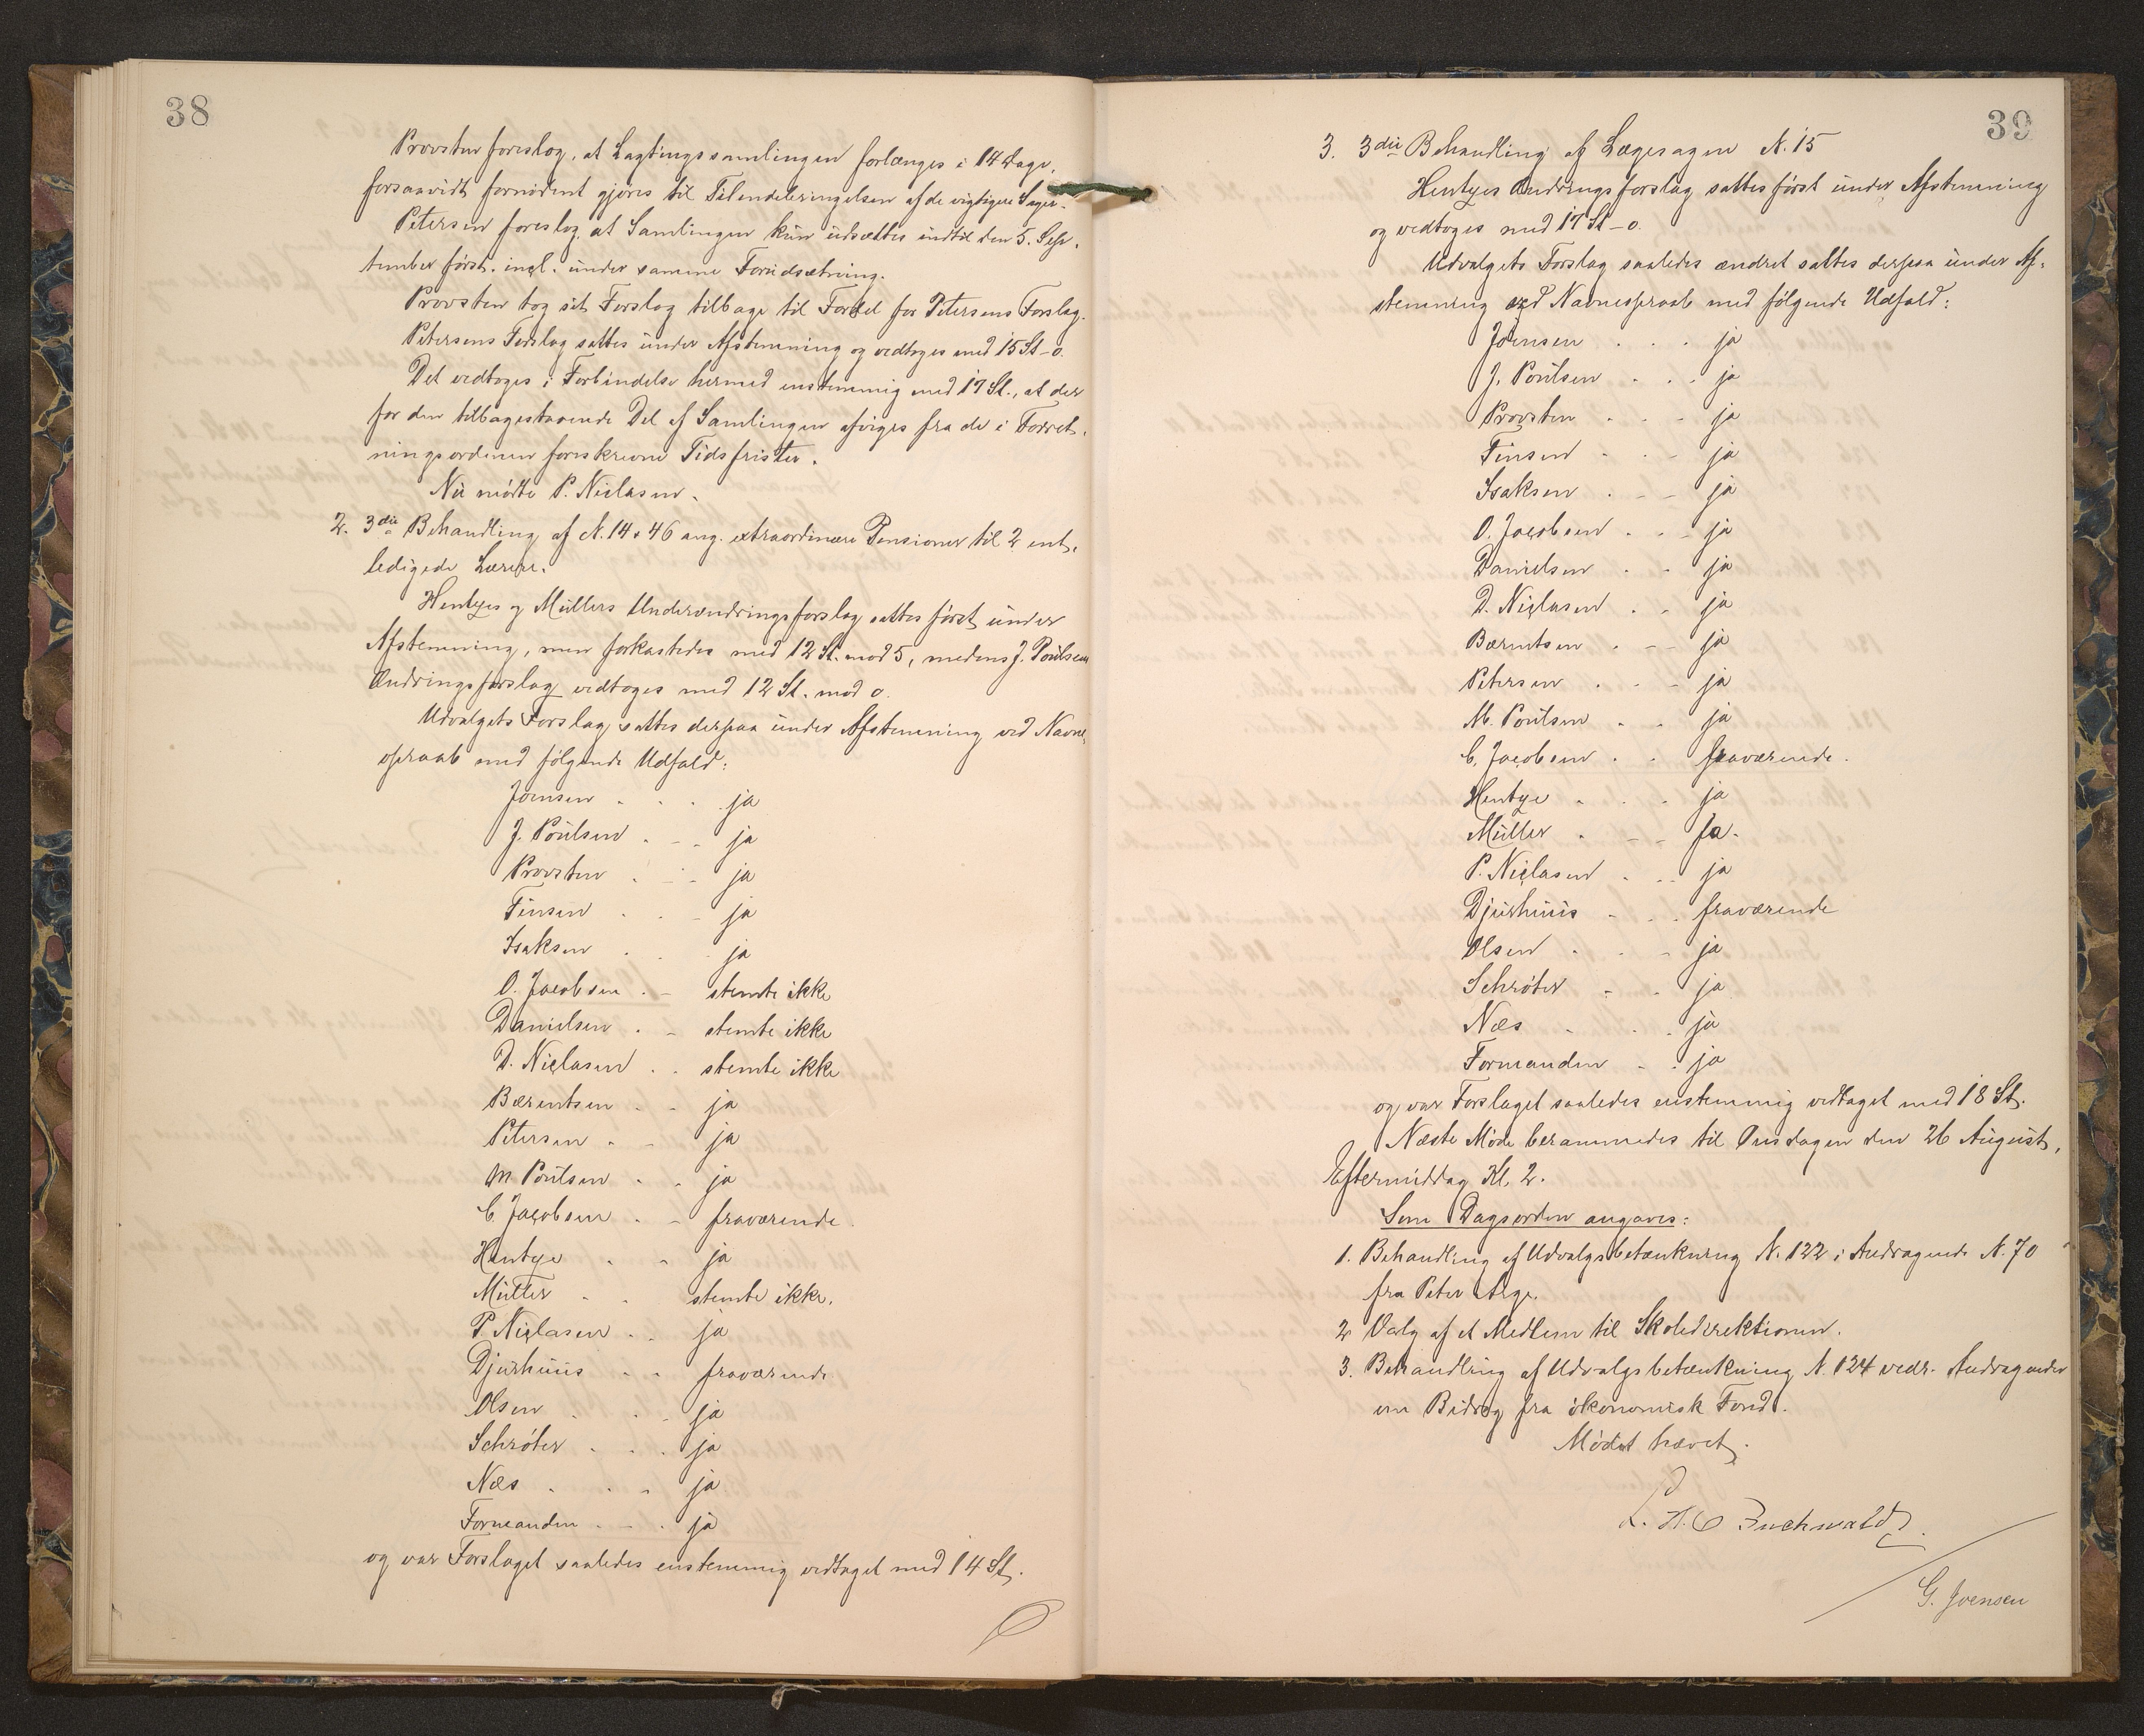 38
Provsten foreslog, at Lagtingssamlingen forlænges i 14 Dage,
forsaavidt fornødent gjøres til Tilendebringelsen af de vigtigere Sager.
Petersen foreslog at Samlingen kun udsættes indtil den 5. Sep-
tember først. incl. under samme Forudsætning.
Provsten tog sit Forslag tilbage til Fordel for Petersens Forslag.
Petersens Forslag sattes under Afstemning og vedtoges med 15 St - 0.
Det vedtoges i Forbindelse hermed enstemmig med 17 St., at der
for den tilbagestaaende Del af Samlingen afviges fra de i Forret-
ningsordenen foreskrevne Tidsfrister.
Nu mødte P. Niclasen.
2. 3die Behandling af N. 14 & 46 ang. extraordinære Pensioner til 2 ent-
ledigede Lærere.
Hentzes og Müllers Underændringsforslag sattes først under
Afstemning, men forkastedes med 12 St. mod 5, medens J. Poulsens
Ændringsforslag vedtoges med 12 St. mod 0.
Udvalgets Forslag sattes derpaa under Afstemning ved Navne-
opraab med følgende Udfald:
Joensen . . . ja
J. Poulsen . - - ja
Provsten . - - ja
Finsen . . - ja
Isaksen . . . ja
O. Jacobsen . - stemte ikke
Danielsen . - stemte ikke
D. Niclasen . . stemte ikke
Bærentsen . - ja
Petersen . - ja
M. Poulsen . . ja
C. Jacobsen . - fraværende.
Hentze . - ja
Müller . . stemte ikke.
P. Niclasen . . ja
Djurhuus . . fraværende
Olsen . . . ja
Schrøter . . . ja
Næs . . - ja
Formanden . - . ja
og var Forslaget saaledes enstemmig vedtaget med 14 St.
39
3. 3die Behandling af Lægesagen N. 15
Hentzes Ændringsforslag sattes først under Afstemning
og vedtoges med 17 St - 0.
Udvalgets Forslag saaledes ændret sattes derpaa under Af-
stemning ved Navneopraab med følgende Udfald:
Joensen . . . ja
J. Poulsen . . . ja
Provsten . . - ja
Finsen . . - ja
Isaksen . - - ja
O. Jacobsen . . - ja
Danielsen . . ja
D. Niclasen . - ja
Bærentsen . - - ja
Petersen . . - ja
M. Poulsen . . ja
C. Jacobsen . . fraværende.
Hentze . . . ja
Müller . - - Ja.
P. Niclasen . . ja
Djurhuus . . . fraværende
Olsen . . - ja
Schrøter - . ja
Næs - . . ja
Formanden - . ja
og var Forslaget saaledes enstemmig vedtaget med 18 St.
Næste Møde berammedes til Onsdagen den 26 August,
Eftermiddag Kl. 2.
Som Dagsorden angaves:
1. Behandling af Udvalgsbetænkning N. 122 i Andragende N. 70
fra Peter Arge.
2 Valg af et Medlem til Skoledirektionen.
3. Behandling af Udvalgsbetænkning N. 124 vedr. Andragender
om Bidrag fra økonomisk Fond.
Mødet hævet.
L. H. C Buchwaldt.
G. Joensen